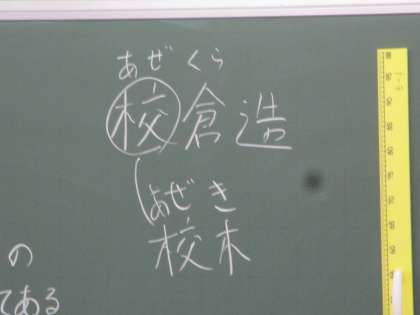 あぜくら
校倉造
あぜき
校木
の
てある